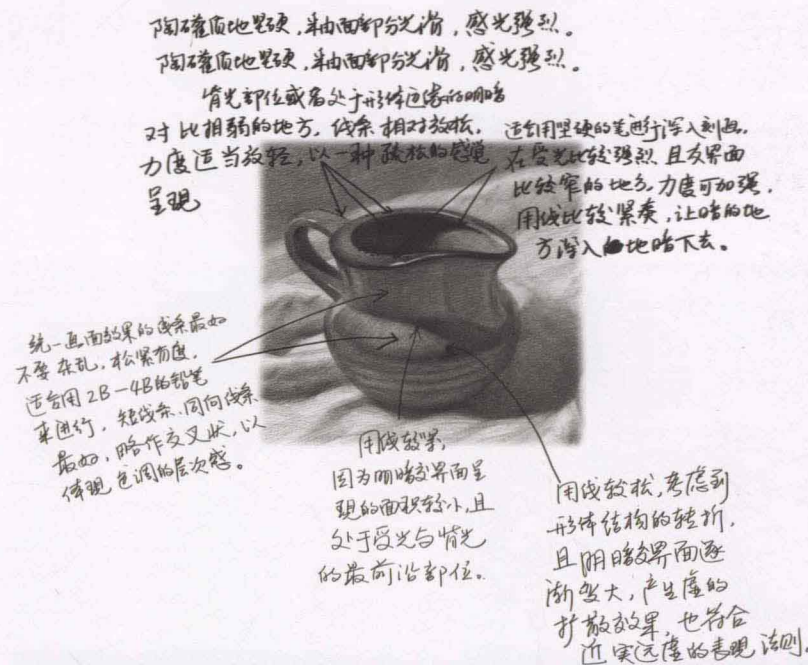 陶罐质地坚硬,釉面部分光滑,感光强烈。
陶罐质地坚硬,釉面部分光滑,感光强烈。
背光部位或者处于形体边缘的明暗
对比相弱的地方,线条相对放松,
力度适当放轻,以一种较松的感觉
呈现
适合用坚硬的笔进行深入刻画,
在受光比较强烈且交界面
比较窄的地方,力度可加强,
用线比较紧凑,让暗的地
方深入地暗下去。
统一画面效果的线条最好
不要杂乱,松紧有度,
适合用2B-4B的铅笔
来进行,短线条、同向线条
最好,略作交叉状,以
体现色调的层次感。
用线较紧,
因为明暗交界面呈
现的面积较小,且
处于受光与背光
的最前沿部位。
用线较松,考虑到
形体结构的转折,
且明暗交界面逐
渐变大,产生虚的
扩散效果,也符合
近实远虚的表现法则。